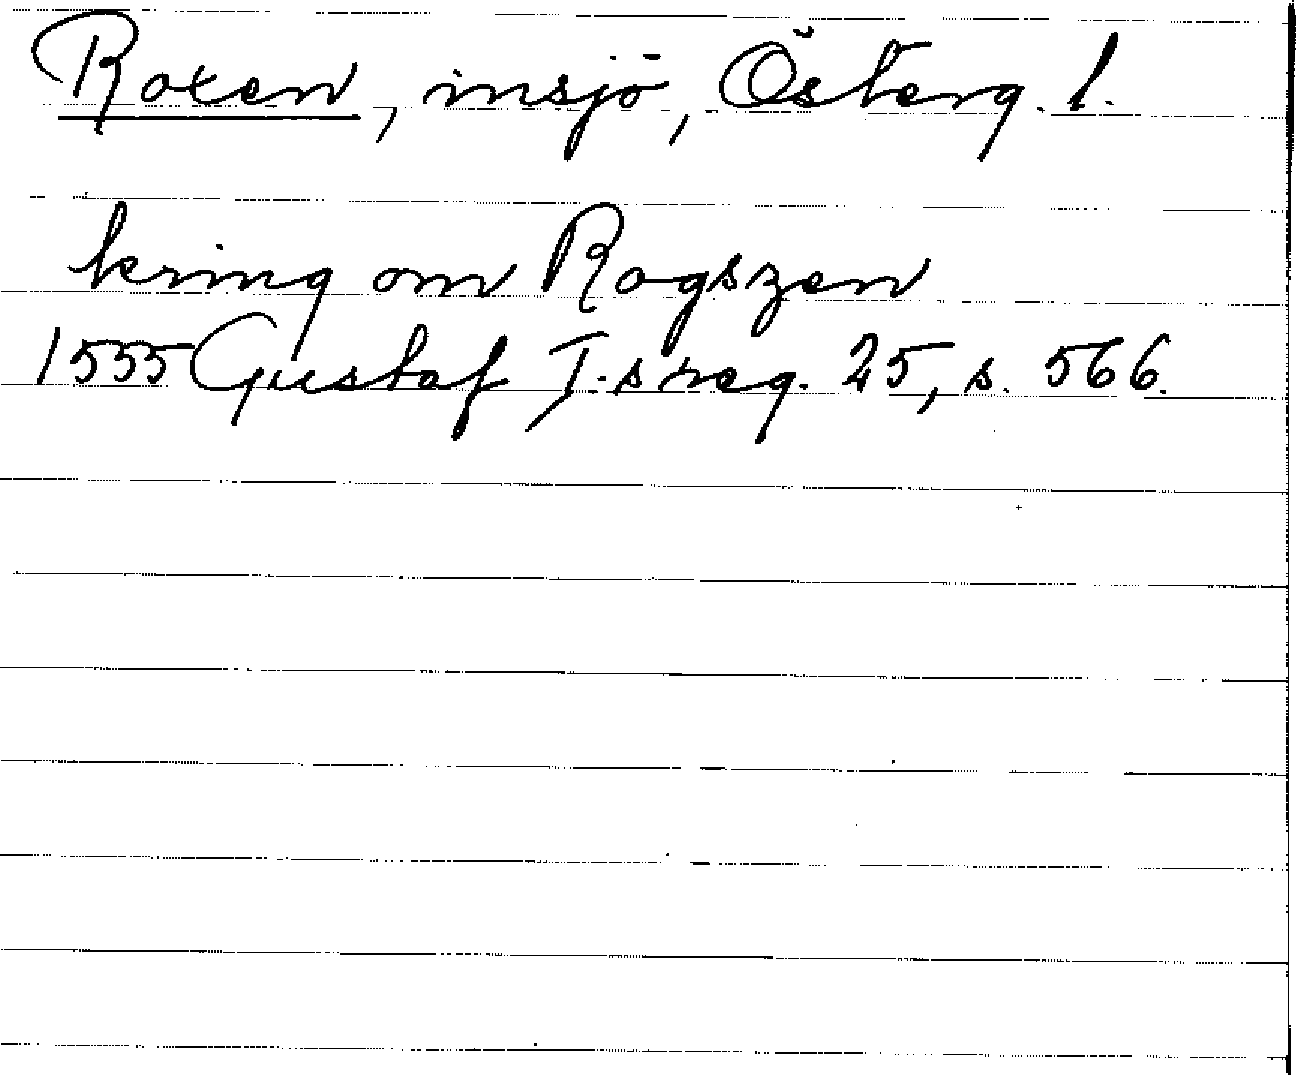 Roxen, insjö, Österg. l.
kring om Rogszen
1555 Gustaf I.s reg. 25, s. 566.